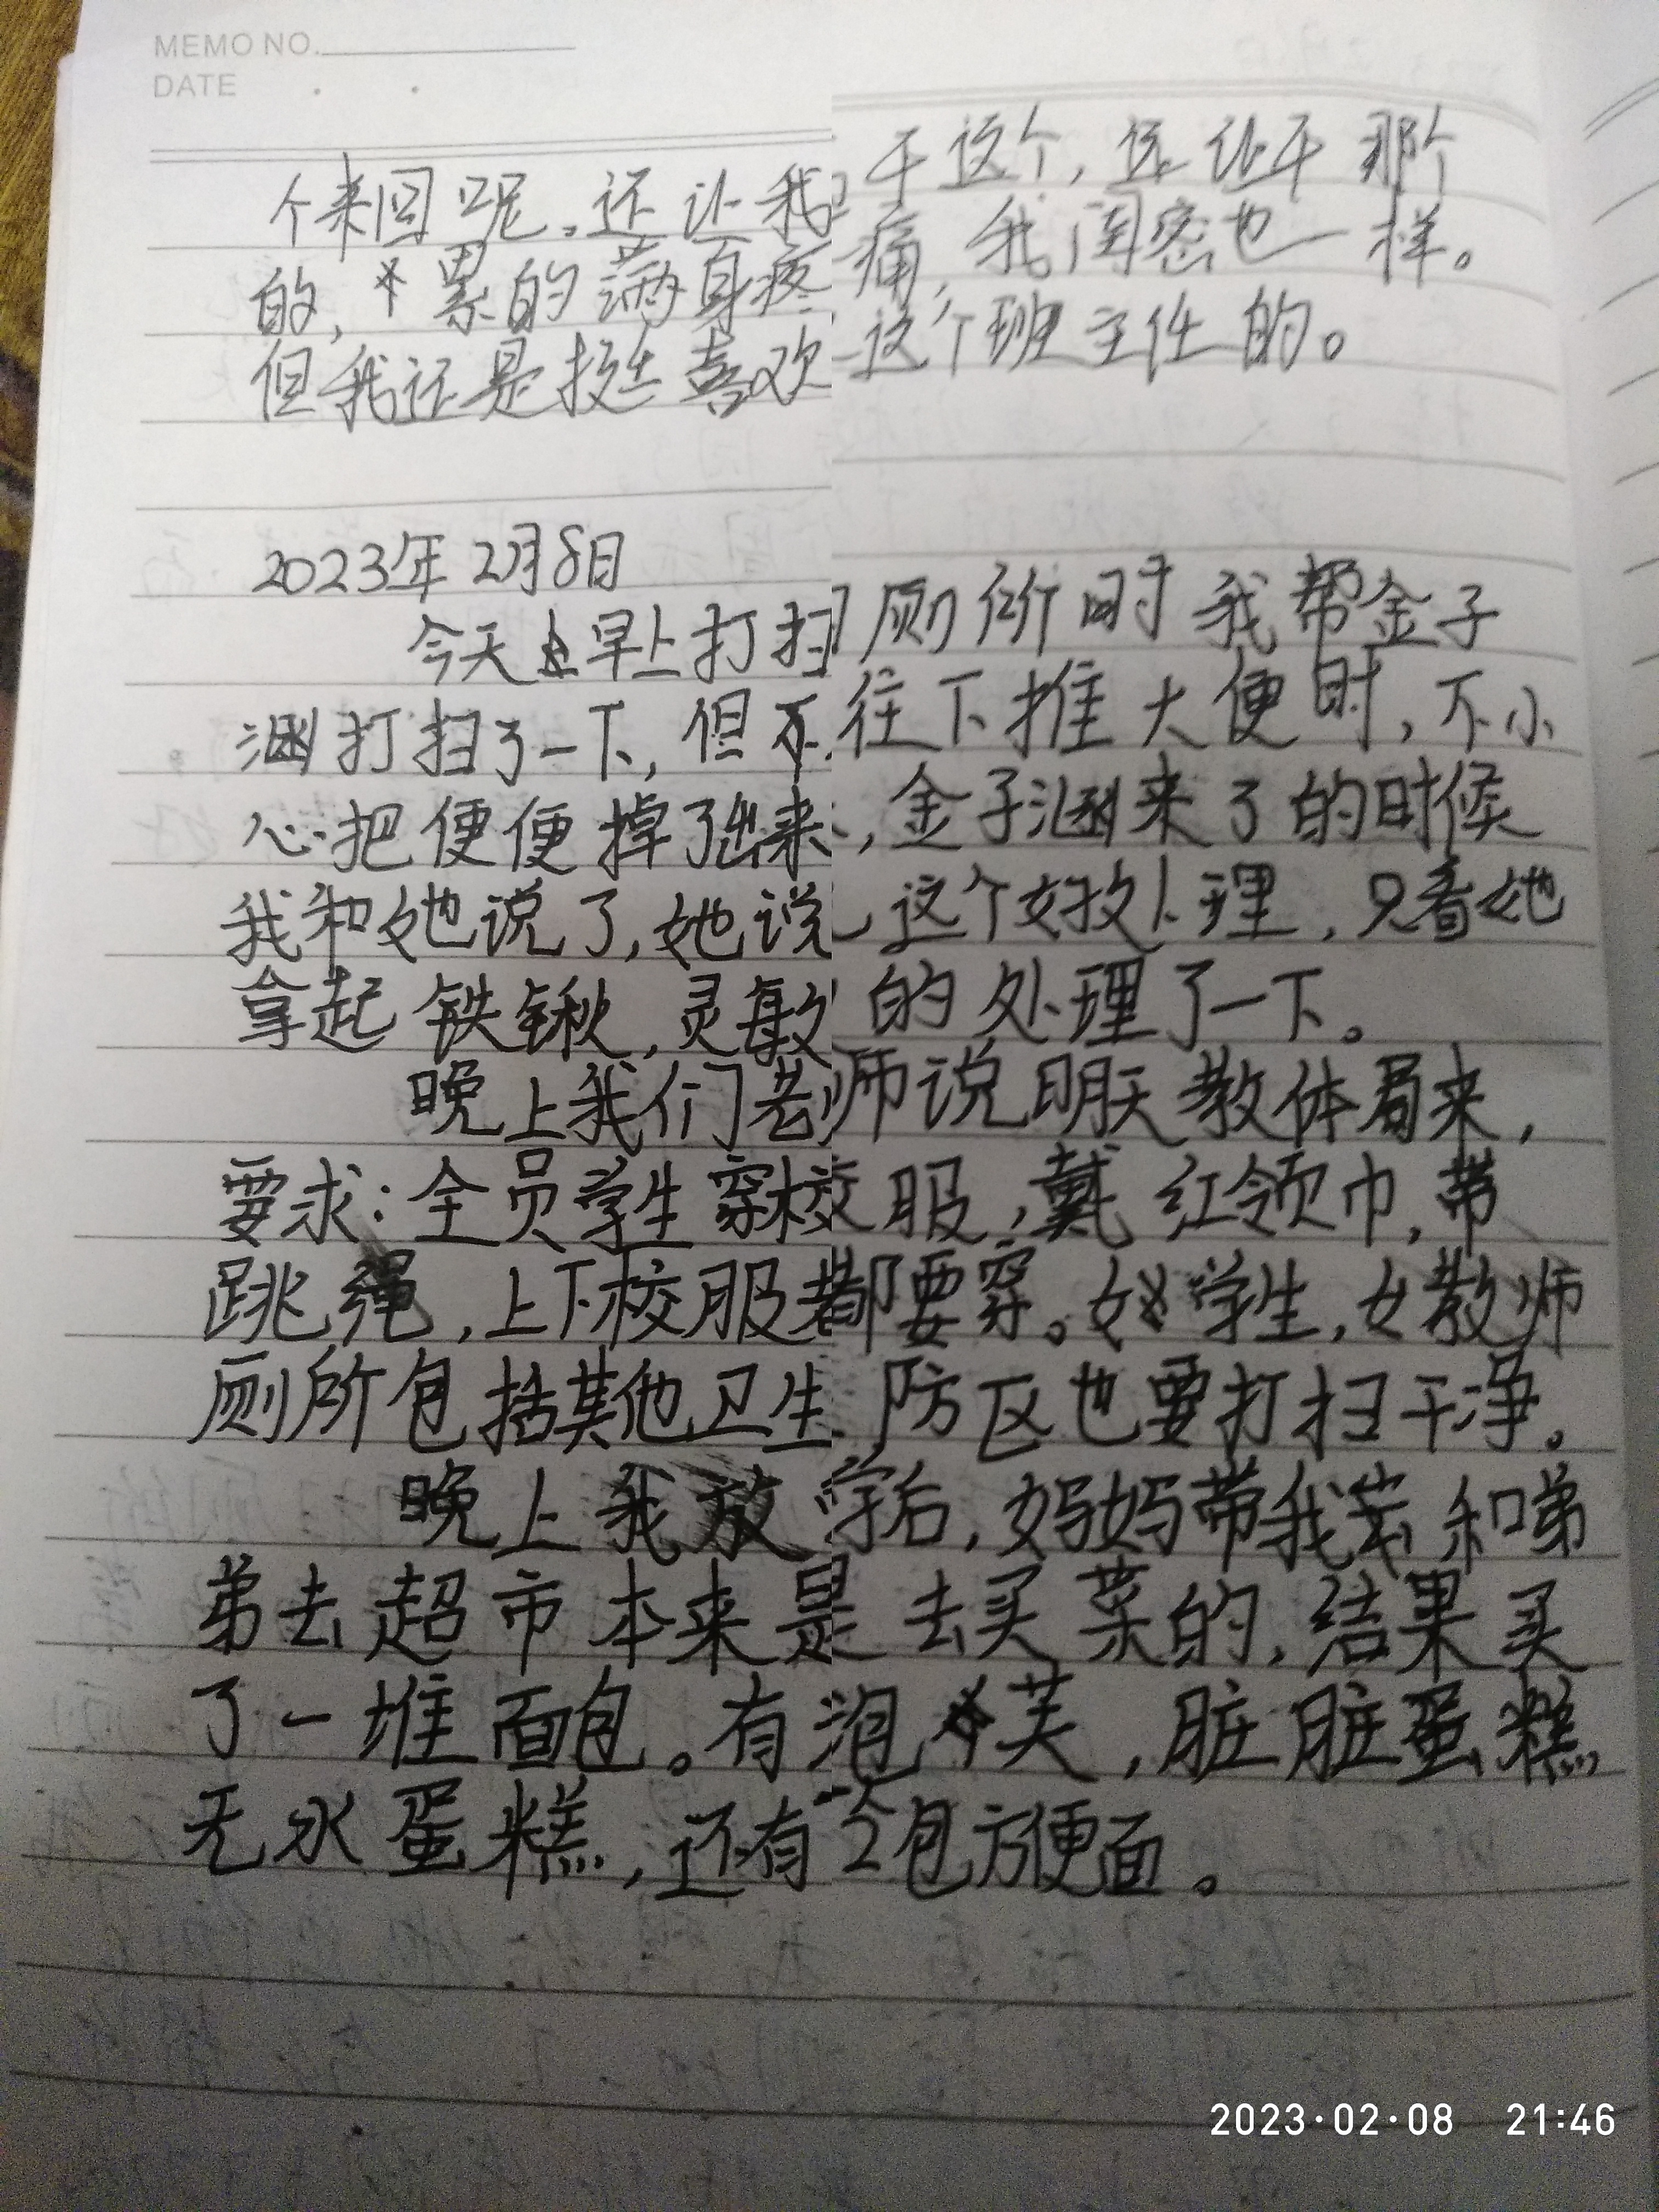 MEMO NO.
DATE
个来回呢。还让我干这个,还让干那个
的,累的满身疼痛,我闺密也一样。
但我还是挺喜欢这个班主任的。
2023年2月8日
今天早上打扫厕所时我帮金子
涵打扫了一下,但不往下推大便时,不小
心把便便掉了出来,金子涵来了的时候
我和她说了,她说这个好处理,只看她
拿起铁锹,灵敏的处理了一下。
晚上我们老师说明天教体局来,
要求:全员学生穿校服,戴红领巾,带
跳绳,上下校服都要穿。女学生,女教师
厕所包括其他卫生防区也要打扫干净。
晚上我放学后,妈妈带我去和弟
弟去超市本来是去买菜的,结果买
了一堆面包。有泡芙,脏脏蛋糕
无水蛋糕,还有2包方便面。
2023·02·08 21:46